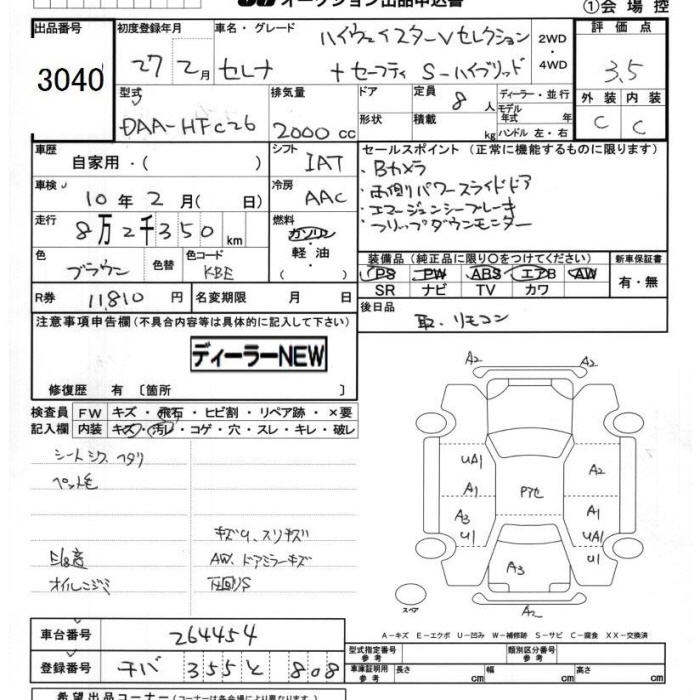 オークション出品申込書
①会場控
出品番号
3040
初度登録年月
27 2月
車名・グレード
ハイウェイスターVセレクション
セレナ +セーフティ S-ハイブリッド
2WD
・
4WD
評価点
3.5
外装 内装
C C
型式
DAA-HFC26
排気量
2000 cc
ドア
形状
定員 8 人
積載 kg
ディーラー・並行
モデル
年式 年
ハンドル 左・右
車歴
自家用・( )
シフト
IAT
車検
10年2月( 日)
冷房
AAC
走行
8万2千350 km
燃料
ガソリン
・
軽油
( )
色
ブラウン
色替
色コード
KBE
R券 11,810 円
名変期限 月 日
セールスポイント (正常に機能するものに限ります)
・Bカメラ
・両側パワースライドドア
・エマージェンシーブレーキ
・フリップダウンモニター
装備品 (純正品に限り○をつけてください)
PS PW ABS エアB AW
SR ナビ TV カワ
新車保証書
有・無
後日品
取、リモコン
注意事項申告欄 (不具合内容等は具体的に記入して下さい)
ディーラーNEW
修復歴 有 〔箇所 〕
検査員 FW キズ・飛石・ヒビ割・リペア跡・×要
記入欄 内装 キズ・汚レ・コゲ・穴・スレ・キレ・破レ
シートシワ ヘタリ
ペット毛
キズU、スリキズ
AW、ドアミラーキズ
オイルニジミ
下回りS
A2
A2
UA1
A2
A1
A3
A1
UA1
UA1
U1
U1
A3
A2
スペア
A-キズ E-エクボ U-凹み W-補修跡 S-サビ C-腐食 XX-交換済
車台番号 264454
登録番号 チバ 355 と 808
型式指定番号
参考
類別区分番号
参考
車庫証明用
参考
長さ cm 幅 cm 高さ cm
希望出品コーナー (コーナーは各会場により異なります)